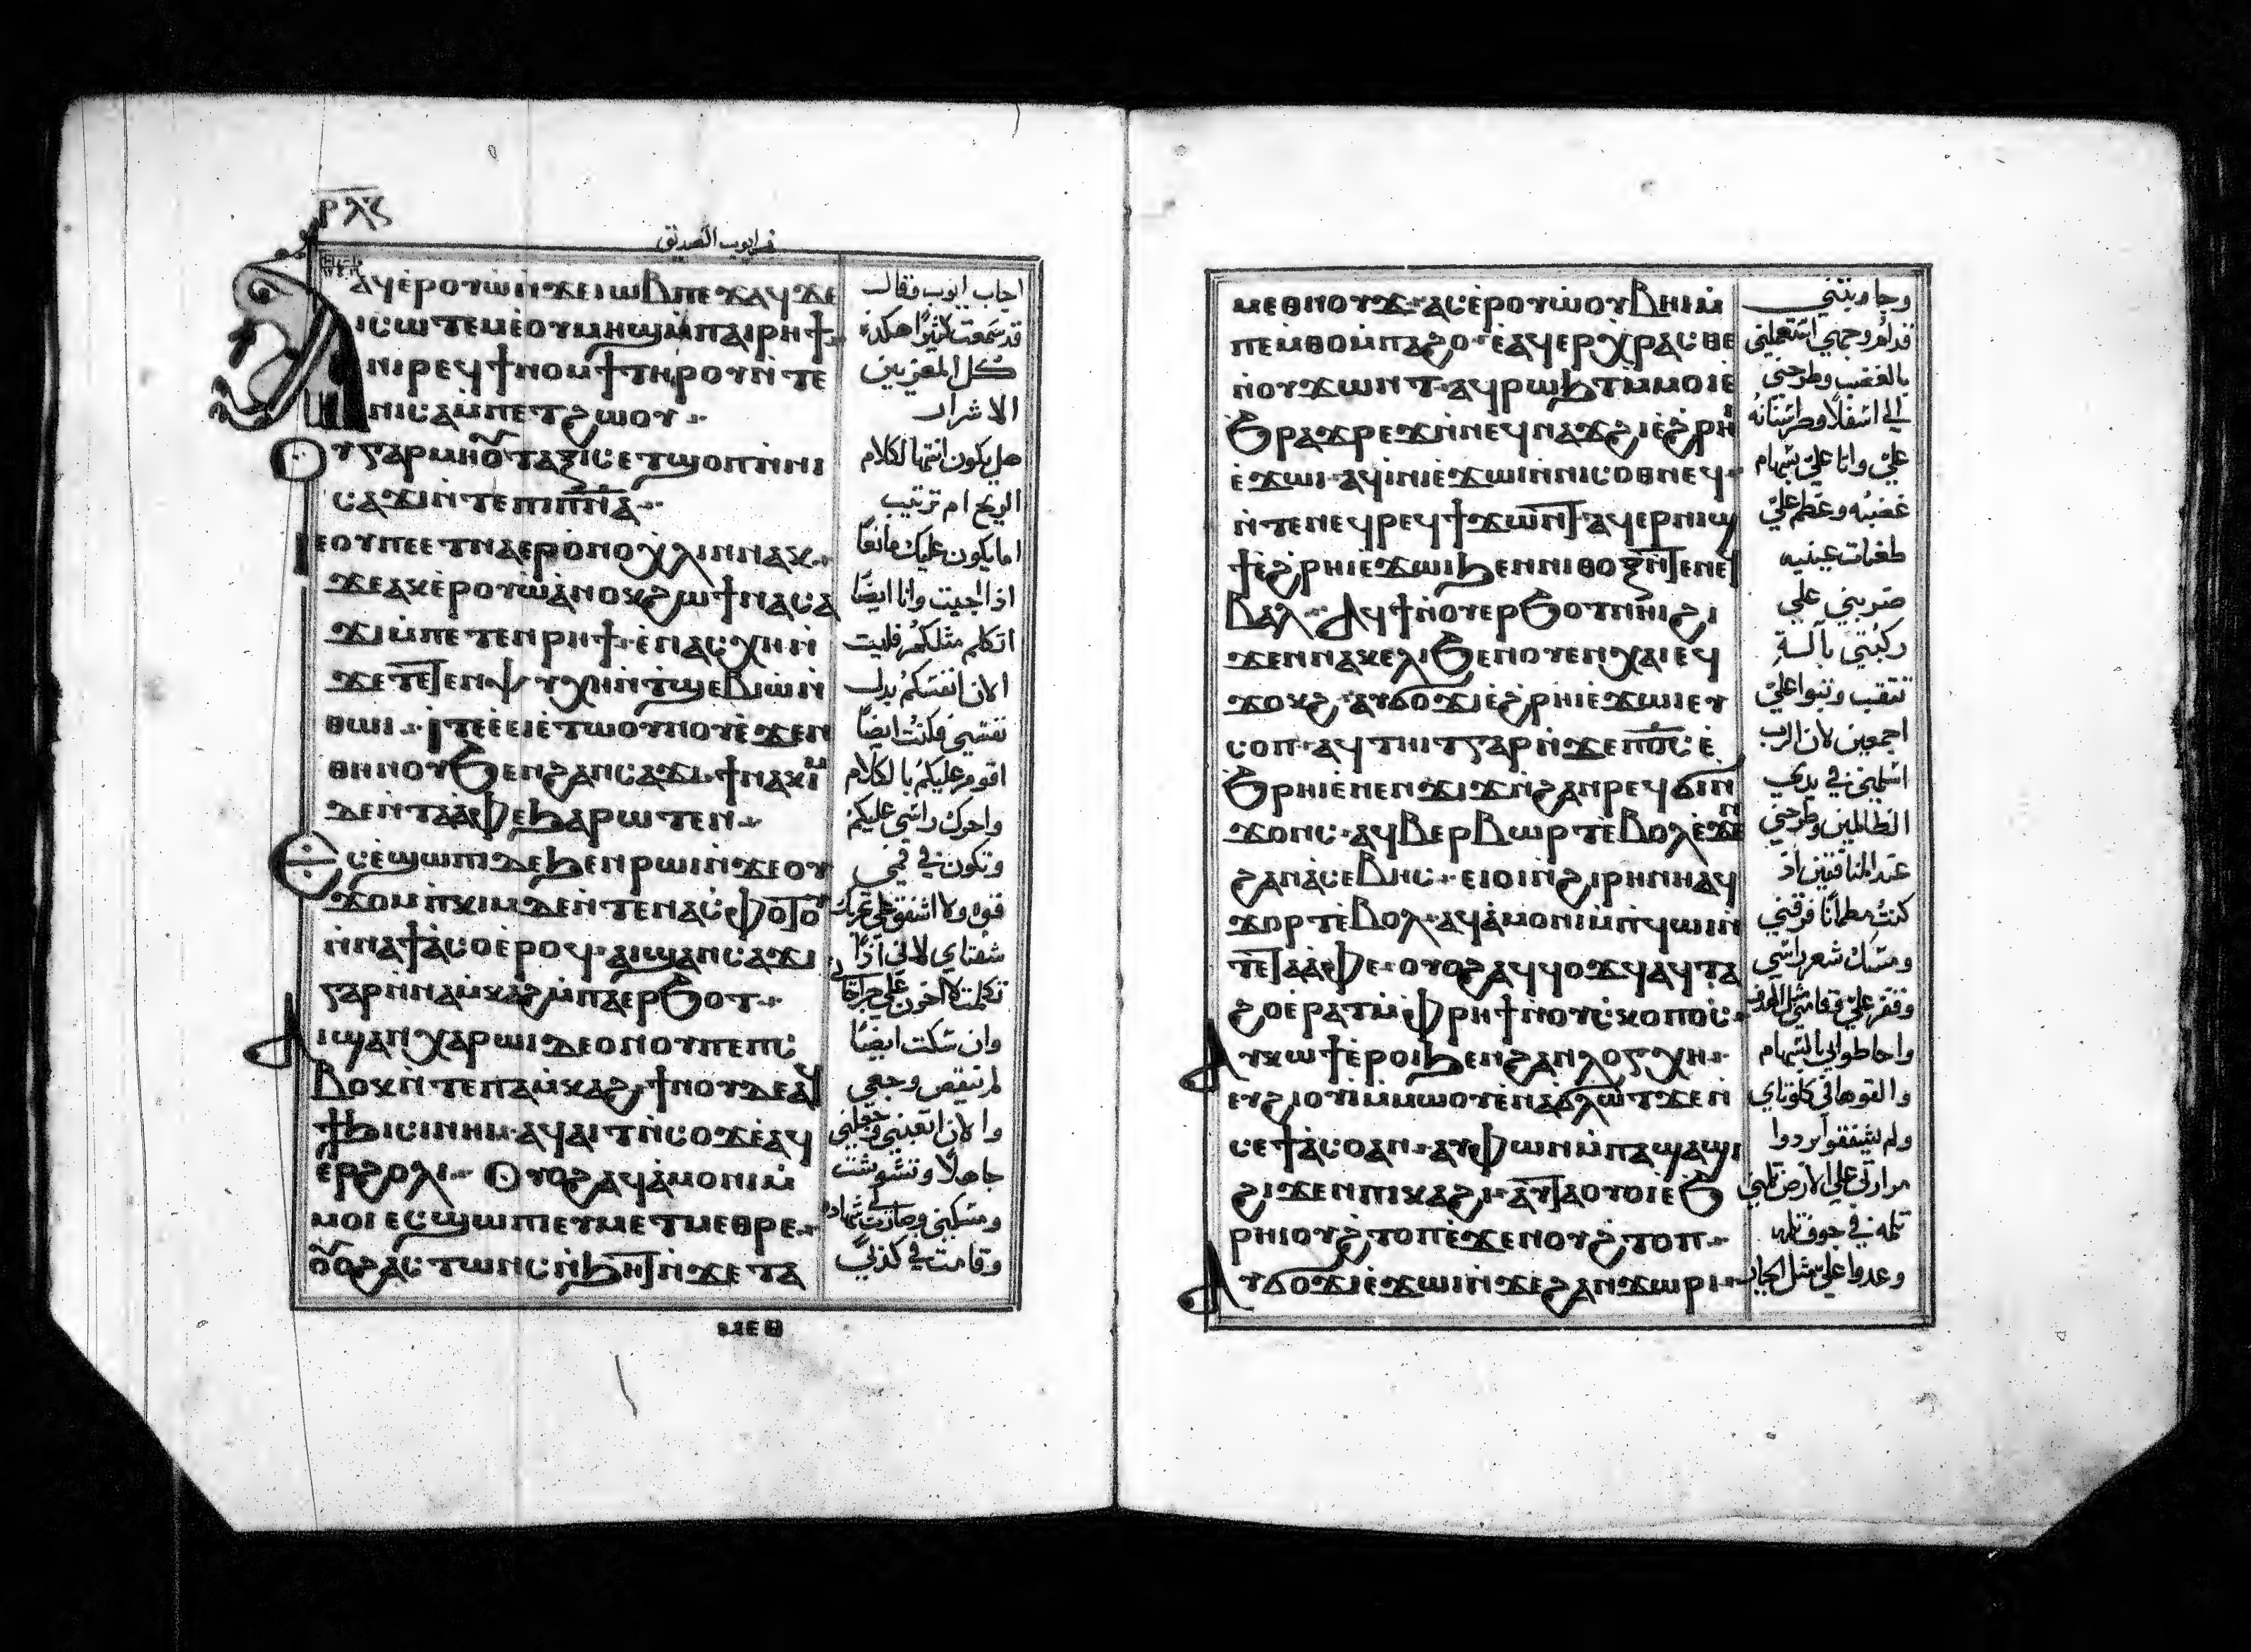 ⲣⲗⲋ
ⲁϥⲉⲣⲟⲩⲱ ⲛ̇ϫⲉ ⲓⲱⲃ ⲡⲉϫⲁϥ ϫⲉ
ⲓⲥⲱⲧⲉⲙ ⲉ̇ⲟⲩⲙⲏϣ ⲙ̇ⲡⲁⲓⲣⲏϯ
ⲛⲓⲣⲉϥϯⲛⲟⲙϯ ⲧⲏⲣⲟⲩ ⲛ̇ⲧⲉ
ⲛⲓⲥⲁⲙ̇ⲡⲉⲧϩⲱⲟⲩ
ⲟⲩ ⲅⲁⲣ ⲙⲏ ⲟⲩⲟⲛ ⲧⲁⲝⲓⲥ ⲉⲧϣⲟⲡ ⲛ̇ⲛⲓ
ⲥⲁϫⲓ ⲛ̇ⲧⲉ ⲡⲓⲡ̅ⲛ̅ⲁ̅
ⲓⲉ ⲟⲩ ⲡⲉ ⲉⲧⲛⲁⲉⲣⲉ̇ⲛⲟⲭⲗⲓⲛ ⲛⲁⲕ
ϫⲉ ⲁⲕⲉ̇ⲣⲟⲩⲱ̇ ⲁ̇ⲛⲟⲕ ϩⲱ ϯⲛⲁⲥⲁ
ϫⲓ ⲙ̇ⲡⲉⲧⲉⲛⲣⲏϯ ⲉ̇ⲛⲁⲥⲭⲏ ⲛ̇
ϫⲉ ⲧⲉⲧⲉⲛⲯⲩⲭⲏ ⲛ̇ⲧϣⲉⲃⲓⲱ ⲛ̇
ⲑⲱⲓ ⲓⲧⲉ ⲉⲓⲉ̇ⲧⲱⲟⲩⲛⲟⲩ ⲉ̇ϫⲉⲛ
ⲑⲏⲛⲟⲩ ϧⲉⲛ ϩⲁⲛⲥⲁϫⲓ ϯⲛⲁⲕⲓⲙ
ⲇⲉ ⲛ̇ⲧⲁⲁⲫⲉ ϧⲁⲣⲱⲧⲉⲛ
ⲉⲥⲉ̇ϣⲱⲡⲓ ⲇⲉ ϧⲉⲛ ⲣⲱⲓ ⲛ̇ϫⲉ ⲟⲩ
ϫⲟⲙ ⲡⲕⲓⲙ ⲇⲉ ⲛ̇ⲧⲉ ⲛⲁⲥⲫⲟⲧⲟⲩ
ⲛ̇ⲛⲁϯⲁ̇ⲥⲟ ⲉ̇ⲣⲟϥ ⲁⲓϣⲁⲛⲥⲁϫⲓ
ⲅⲁⲣ ⲛ̇ⲛⲁⲙ̇ⲕⲁϩ ⲙ̇ⲡⲁⲉⲣϧⲟⲧ
ⲁⲓϣⲁⲛⲭⲁⲣⲱⲓ ⲇⲉ ⲟⲛ ⲟⲩ ⲡⲉⲡⲥ
ⲃⲟⲕ ⲛ̇ⲧⲉ ⲡⲁⲙ̇ⲕⲁϩ ϯⲛⲟⲩ ⲇⲉ ⲁϥ
ϯϧⲓⲥⲓ ⲛⲏⲓ ⲁϥⲁⲓⲧ ⲛ̇ⲥⲟϫ ⲉ̇ⲁϥ
ⲉⲣϩⲟⲗⲓ ⲟⲩⲟϩ ⲁϥⲁ̇ⲙⲟⲛⲓ ⲙ̇
ⲙⲟⲓ ⲉⲥϣⲱⲡⲓ ⲉⲩⲙⲉⲧⲙⲉⲑⲣⲉ
ⲟⲩⲟϩ ⲁⲥⲧⲱⲛⲥ ⲛ̇ϧⲏⲧ ⲛ̇ϫⲉ ⲧⲁ
في ايوب الصديق
اجاب ايوب وقال
قد سمعت كثيرًا هكذا
كل المعزيين
الاشرار
هل يكون انتها لكلام
الريح ام ترتيب
اما يكون عليك مانعًا
اذا اجبت وانا ايضًا
اتكلم مثلكم فليت
الان انفسكم بدل
نفسي فكنت ايضًا
اقوم عليكم بالكلام
واحرك راسي عليكم
وتكون في فمي
قوه ولا اشفق على تحريك
شفتاي لاني اذا
تكلمت
وان سكت ايضًا
لم تنقص وجعي
والان اتعبني وجعلني
جاهلًا
ومسكني وصارت شهاده
وقامت في كذبي
ⲙⲉⲑⲛⲟⲩϫ ⲁⲥⲉ̇ⲣⲟⲩⲱ ⲟⲩⲃⲏⲓ ⲙ̇
ⲡⲉⲙⲑⲟ ⲙ̇ⲡⲁϩⲟ ⲉ̇ⲁϥⲉⲣⲭⲣⲁⲥⲑⲉ
ⲛⲟⲩϫⲱⲛⲧ ⲁϥⲣⲱϧⲧ ⲙ̇ⲙⲟⲓ ⲉ
ϧⲣⲁϫⲣⲉϫ ⲛ̇ⲛⲉϥⲛⲁϫϩⲓ ⲉ̇ϩⲣⲏⲓ
ⲉ̇ϫⲱⲓ ⲁϥⲓ̇ⲛⲓ ⲉ̇ϫⲱⲓ ⲛ̇ⲛⲓⲥⲟⲑⲛⲉϥ
ⲛ̇ⲧⲉ ⲛⲉϥⲣⲉϥϯϫⲱⲛⲧ ⲁϥⲉⲣⲛⲓϣ
ϯ ⲉ̇ϩⲣⲏⲓ ⲉ̇ϫⲱⲓ ϧⲉⲛ ⲛⲓⲑⲟⲝ ⲛ̇ⲧⲉ ⲛⲉϥ
ⲃⲁⲗ ⲁϥϯ ⲛ̇ⲟⲩⲉⲣϧⲟⲧ ⲛⲏⲓ ϩⲓ
ϫⲉⲛ ⲛⲁⲕⲉⲗⲓ ϧⲉⲛ ⲟⲩⲉⲛⲭⲁⲓ ⲉϥ
ϫⲟⲕϩ ⲁⲩϭⲟϫⲓ ⲉ̇ϩⲣⲏⲓ ⲉ̇ϫⲱⲓ ⲉⲩ
ⲥⲟⲡ ⲁϥⲧⲏⲓⲧ ⲅⲁⲣ ⲛ̇ϫⲉ ⲡ̅ⲟ̅ⲥ̅ ⲉ̇
ϧⲣⲏⲓ ⲉ̇ⲛⲉⲛϫⲓϫ ⲛ̇ϩⲁⲛⲣⲉϥϭⲓⲛ
ϫⲟⲛⲥ ⲁϥⲃⲉⲣⲃⲱⲣⲧ ⲉ̇ⲃⲟⲗ ⲉ̇ϫⲉⲛ
ϩⲁⲛⲁ̇ⲥⲉⲃⲏⲥ ⲉⲓⲟⲓ ⲛ̇ϩⲓⲣⲏⲛⲏ ⲁϥ
ϫⲟⲣⲧ ⲉ̇ⲃⲟⲗ ⲁϥⲁ̇ⲙⲟⲛⲓ ⲙ̇ⲡϥⲱⲓ ⲛ̇
ⲧⲉ ⲧⲁⲁⲫⲉ ⲟⲩⲟϩ ⲁϥϥⲟϫϥ ⲁϥⲧⲁ
ϩⲟ ⲉ̇ⲣⲁⲧ ⲙ̇ⲫⲣⲏϯ ⲛ̇ⲟⲩⲥⲕⲟⲡⲟⲥ
ⲁⲩⲕⲱϯ ⲉ̇ⲣⲟⲓ ϧⲉⲛ ϩⲁⲛⲗⲟⲅⲭⲏ
ⲉⲩϩⲓⲟⲩⲓ̇ ⲙ̇ⲙⲱⲟⲩ ⲉ̇ⲛⲁϭⲗⲱⲧ ϫⲉⲛ
ⲥⲉϯⲁ̇ⲥⲟ ⲁⲛ ⲁⲩⲫⲱⲛ ⲙ̇ⲡⲁϣⲁϣⲓ
ϩⲓϫⲉⲛ ⲡⲓⲕⲁϩⲓ ⲁⲩⲧⲁⲟⲩⲟⲓ ⲉ̇ϧ
ⲣⲏⲓ ⲟⲩϩⲧⲟⲡ ⲉ̇ϫⲉⲛ ⲟⲩϩⲧⲟⲡ
ⲁⲩϭⲟϫⲓ ⲉ̇ϫⲱⲓ ⲛ̇ϫⲉ ϩⲁⲛϫⲱⲣⲓ
وجاوبتني
قدام وجهي استعملني
بالغضب وطرحني
الي اسفل
علي واتا علي سهام
غضبه وعظم علي
طغيات عينيه
ضربني علي
ركبتي بآلسة
علي
اجمعين لان الرب
اسلمني في يدي
الظالمين وطرحني
عند المنافقين اذ
كنت مطمانًا فرقني
ومسك شعر راسي
واحاطوا بي بالسهام
والقوها في كلوتاي
ولم يشفقوا
مرارتي علي الارض
ثلمه في جوف ثلمه
وعدوا علي مثل الجبابره